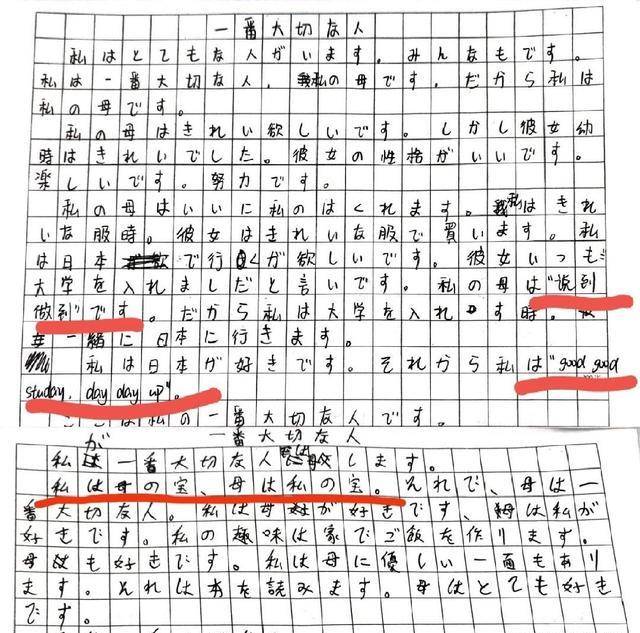 一番大切な人
私はとてもな人がいます。みんなもです。
私は一番大切な人、私の母です。だから私は
私の母です。
私の母はきれい欲しいです。しかし彼女幼
時はきれいでした。彼女の性格がいいです。
楽しいです。努力です。
私の母はいいに私のはくれます。私はきれ
いな服時。彼女はきれいな服で買います。私
は日本で行くが欲しいです。彼女いつも
大学を入れましだと言いです。私の母は"说到
做到"です。だから私は大学を入れます時。
一緒に日本に行きます。
私は日本が好きです。それから私は"good good
studay, day day up"。
私の一番大切な人です。
一番大切な人
私が一番大切な人は母します。
私は母の宝、母は私の宝。それで、母は一
番大切な人。私は母が好きです、母は私が
好きです。私の趣味は家でご飯を作ります。
母も好きです。私は母に優しい一面もあり
ます。それは本を読みます。母はとても好き
です。